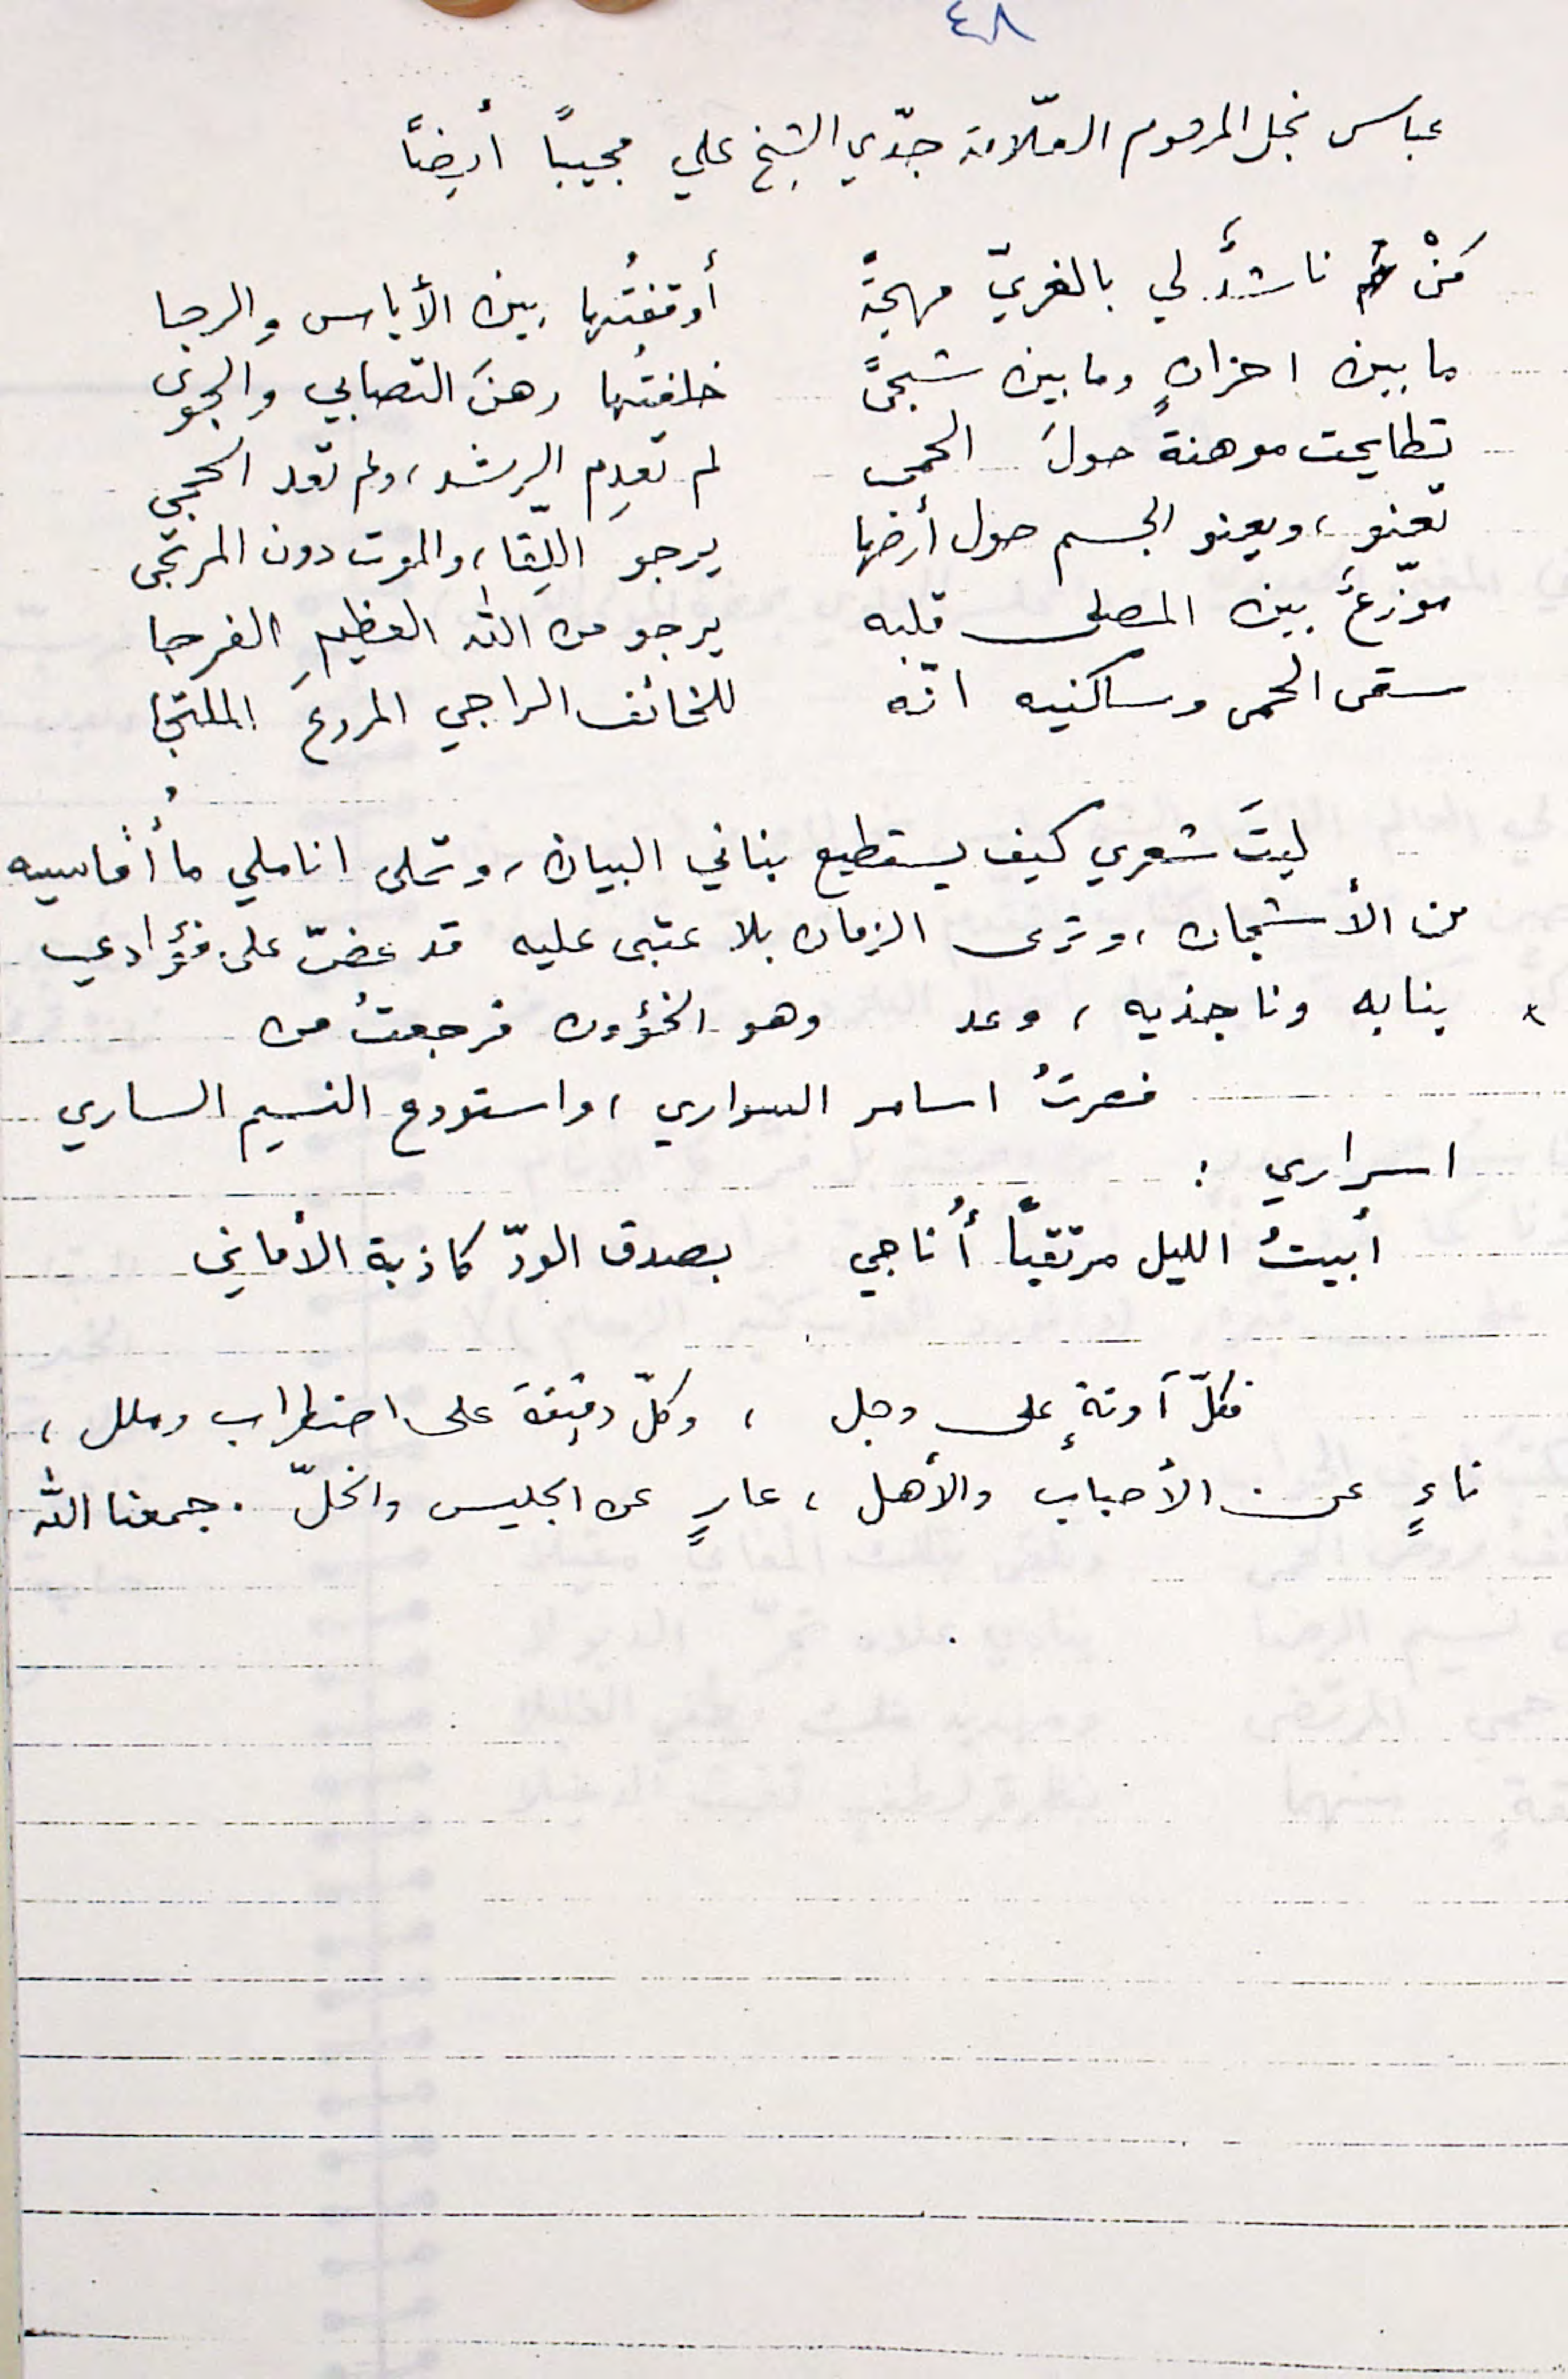 ٤٨
عباس نجل المرحوم العلّامة جدّي الشيخ علي مجيباً أيضاً
مَنْ ناشدٌ لي بالغريّ مهجةً أوقفتُها بين الأياس والرجا
ما بين احزانٍ وما بين شجىً خلفتُها رهنَ التصابي والجوى
تطايحت موهنةً حولَ الحمى لم تعدِم الرشد، ولم تعد الحجى
تعنو، ويعنو الجسم حول أرضها يرجو اللِّقا، والموت دون المرتجى
موزّعٌ بين المصلى قلبه يرجو من الله العظيمِ الفرجا
سقى الحمى وساكنيه انّه للخائف الراجي المروعَ الملتجا
ليتَ شعري كيف يستطيع بناني البيان، وتملى اناملي ما أُقاسيه
من الأشجان، وترى الزمان بلا عتبى عليه قد عضّ على فؤادي
* بنابه وناجذيه، وعد وهو الخؤون فرجعتُ من
فصرتُ اسامر السواري، واستودع النسيم الساري
اسراري :
أبيتُ الليل مرتقباً أُناجي بصدق الودّ كاذبة الأماني
فكلّ آونةٍ على وجل ، وكلّ دقيقة على اضطراب وملل ،
ناءٍ عن الأحباب والأهل ، عارٍ عن الجليس والخلّ . جمعنا الله